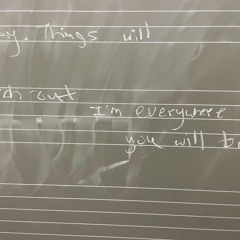 y. Things will
ch out
I'm everywhere
you will b